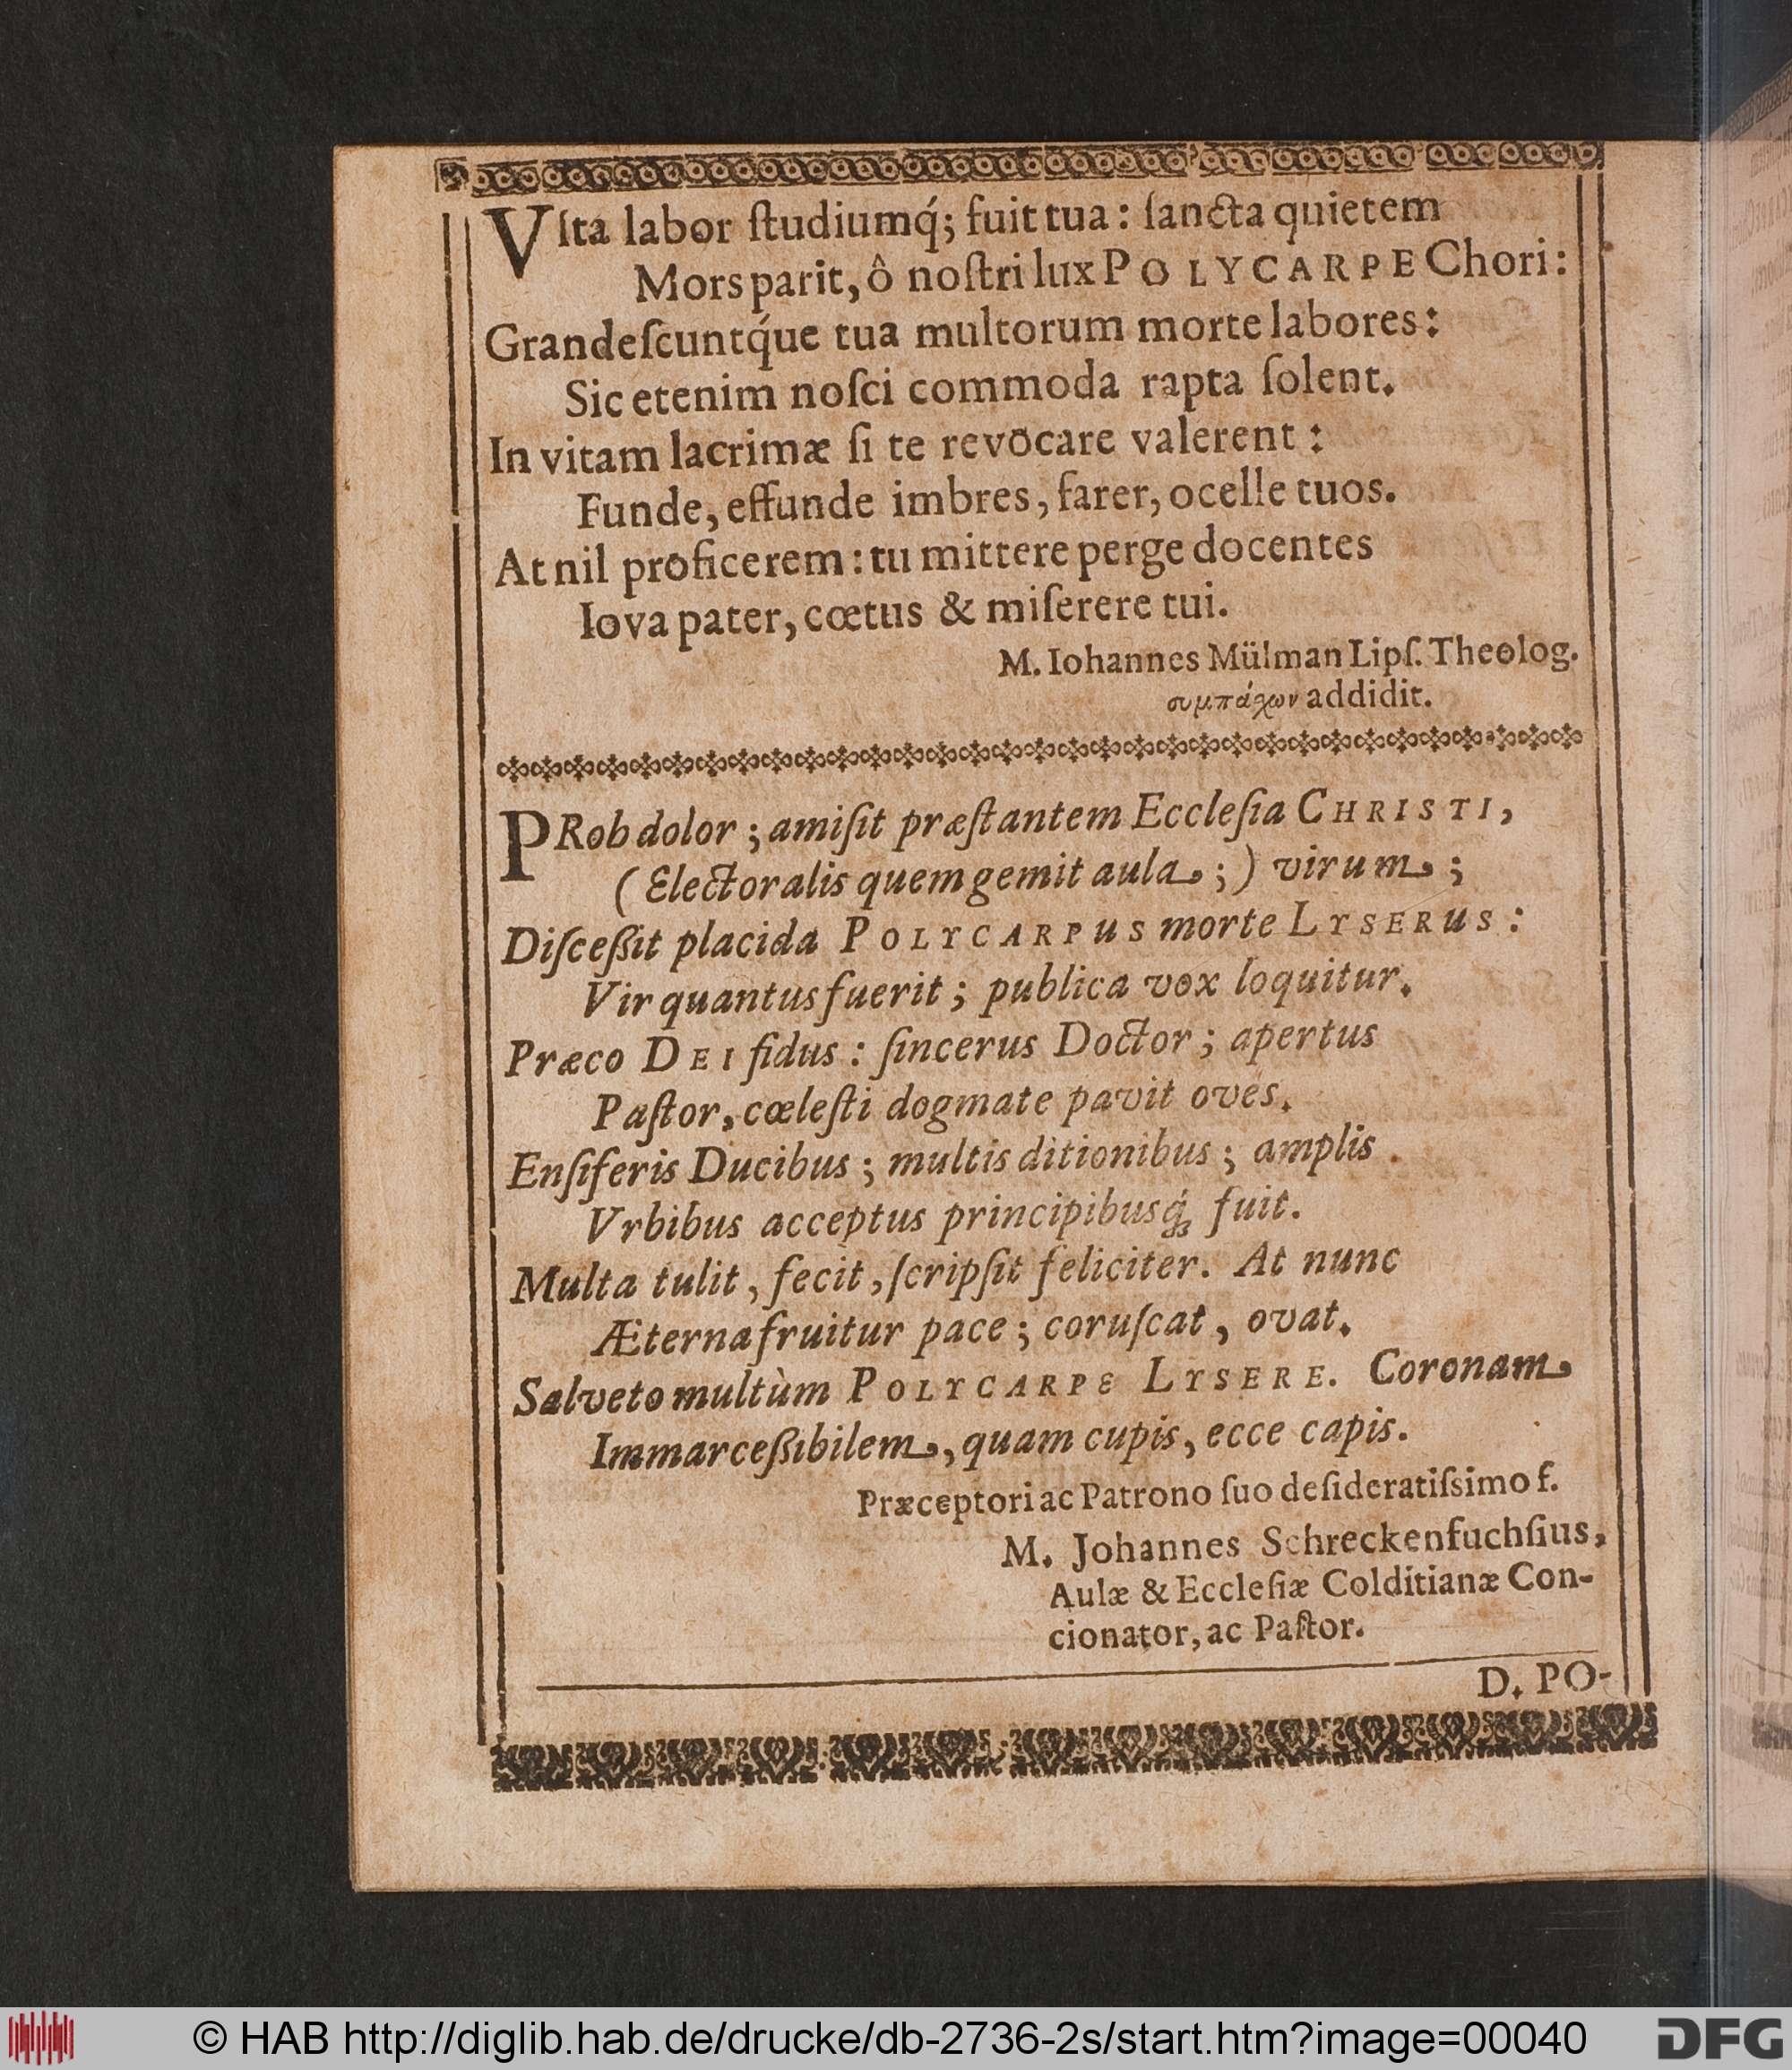 Vſta labor ſtudiumq́; fuit tua: ſancta quietem
Mors parit, ô noſtri lux POLYCARPE Chori:
Grandeſcuntq́ue tua multorum morte labores:
Sic etenim noſci commoda rapta ſolent.
In vitam lacrimæ ſi te revocare valerent:
Funde, effunde imbres, farer, ocelle tuos.
At nil proficerem: tu mittere perge docentes
Iova pater, cœtus & miſerere tui.
M. Iohannes Mülman Lipſ. Theolog.
συμπάχων addidit.
PRob dolor; amiſit præſtantem Eccleſia CHRISTI,
(Electoralis quem gemit aula;) virum;
Diſceßit placida POLYCARPUS morte LYSERUS:
Vir quantus fuerit; publica vox loquitur.
Præco DEI fidus: ſincerus Doctor; apertus
Paſtor, cœleſti dogmate pavit oves.
Enſiferis Ducibus; multis ditionibus; amplis
Vrbibus acceptus principibusq́ꝫ fuit.
Multa tulit, fecit, ſcripſit feliciter. At nunc
Æterna fruitur pace; coruſcat, ovat.
Salveto multùm POLYCARPE LYSERE. Coronam
Immarceßibilem, quam cupis, ecce capis.
Præceptori ac Patrono ſuo deſideratiſsimo f.
M. Johannes Schreckenfuchſius,
Aulæ & Eccleſiæ Colditianæ Con-
cionator, ac Paſtor.
D. PO-
© HAB http://diglib.hab.de/drucke/db-2736-2s/start.htm?image=00040
DFG